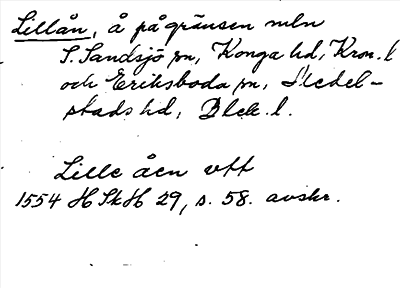 Lillån, å på gränsen mln
S. Sandsjö sn, Konga hd, Kron. l
och Eriksboda sn, Medel-
stads hd, Blek. l.
Lille åen vtt
1554 HSkH 29, s. 58. avskr.